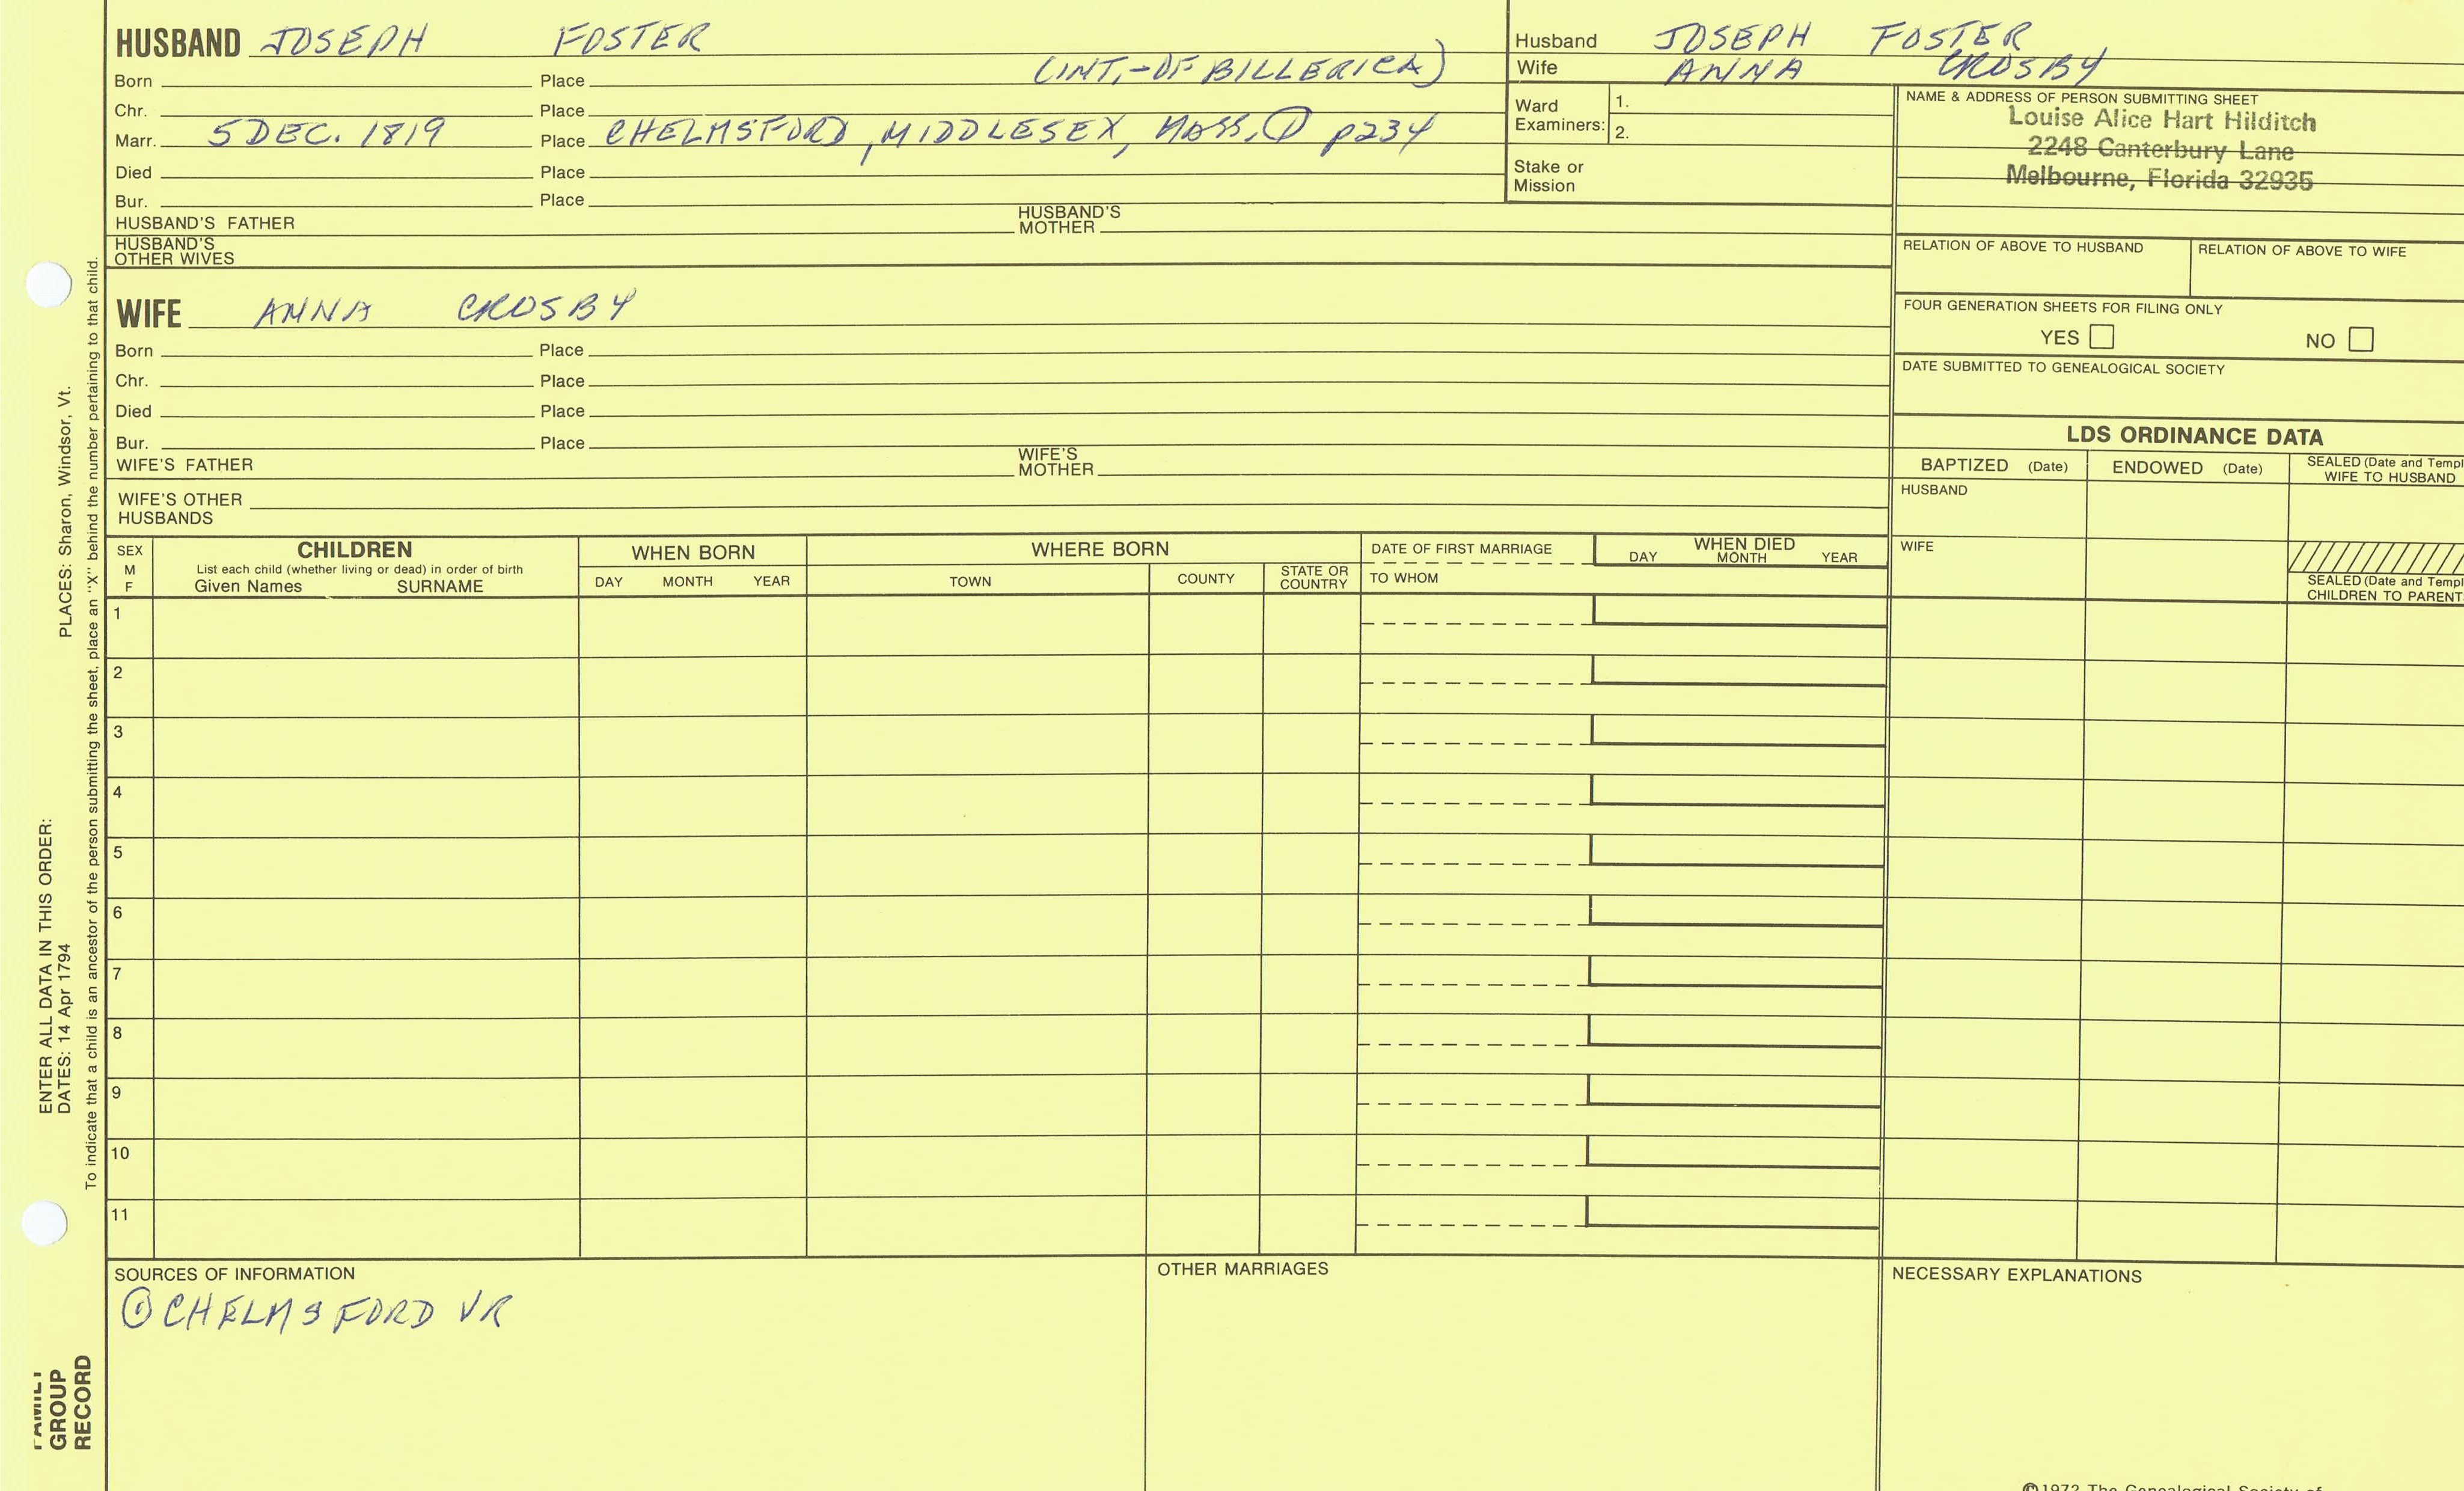 HUSBAND JOSEPH FOSTER
Born Place (INT,-OF BILLERICA)
Chr. Place
Marr. 5 DEC. 1819 Place CHELMSFORD, MIDDLESEX, MASS. ① p234
Died Place
Bur. Place
HUSBAND'S FATHER HUSBAND'S MOTHER
HUSBAND'S
OTHER WIVES
WIFE ANNA CROSBY
Born Place
Chr. Place
Died Place
Bur. Place
WIFE'S FATHER WIFE'S MOTHER
WIFE'S OTHER
HUSBANDS
Husband JOSEPH FOSTER
Wife ANNA CROSBY
Ward
Examiners:
1.
2.
Stake or
Mission
NAME & ADDRESS OF PERSON SUBMITTING SHEET
Louise Alice Hart Hilditch
2248 Canterbury Lane
Melbourne, Florida 32935
RELATION OF ABOVE TO HUSBAND RELATION OF ABOVE TO WIFE
FOUR GENERATION SHEETS FOR FILING ONLY
YES NO
DATE SUBMITTED TO GENEALOGICAL SOCIETY
LDS ORDINANCE DATA
BAPTIZED (Date) ENDOWED (Date) SEALED (Date and Templ
WIFE TO HUSBAND
HUSBAND
WIFE
SEALED (Date and Templ
CHILDREN TO PARENT
SEX
M
F
CHILDREN
List each child (whether living or dead) in order of birth
Given Names SURNAME
WHEN BORN
DAY MONTH YEAR
WHERE BORN
TOWN COUNTY STATE OR COUNTRY
DATE OF FIRST MARRIAGE
TO WHOM
WHEN DIED
DAY MONTH YEAR
1
2
3
4
5
6
7
8
9
10
11
SOURCES OF INFORMATION
① CHELMSFORD VR
OTHER MARRIAGES
NECESSARY EXPLANATIONS
©1972 The Genealogical Society of
PLACES: Sharon, Windsor, Vt.
ENTER ALL DATA IN THIS ORDER:
DATES: 14 Apr 1794
To indicate that a child is an ancestor of the person submitting the sheet, place an "X" behind the number pertaining to that child.
FAMILY
GROUP
RECORD